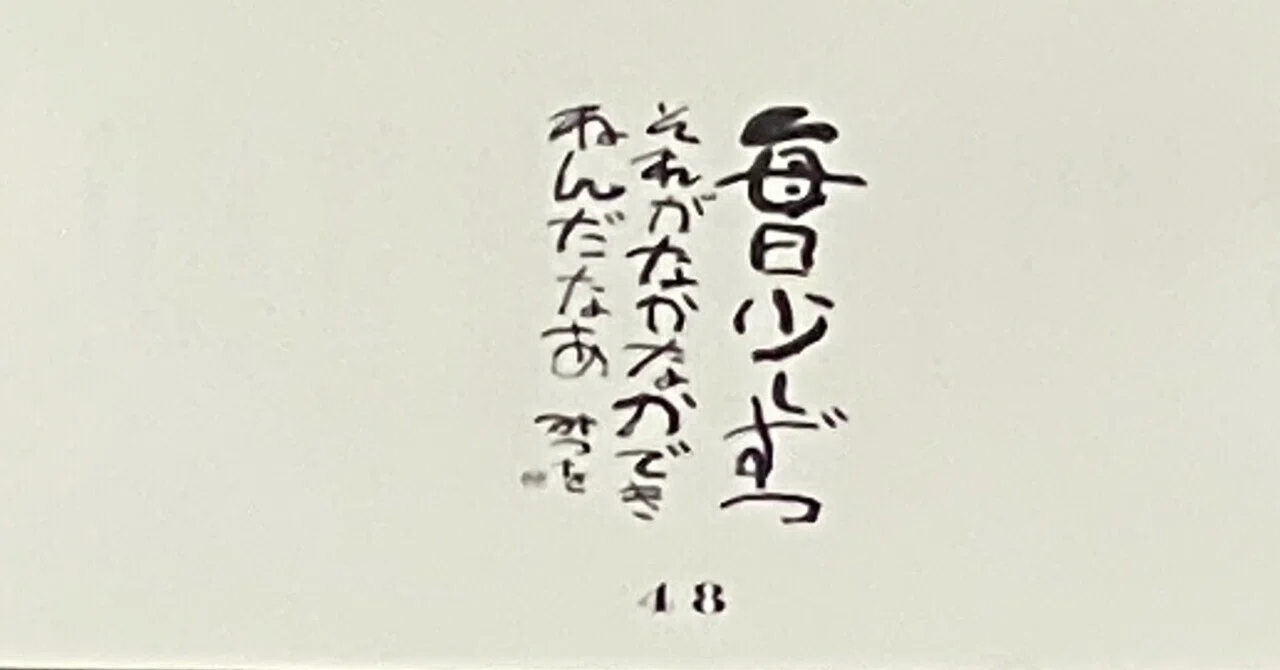 毎日少しずつ
それがなかなかでき
ねんだなあ みつを
48